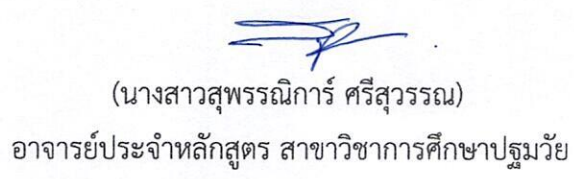 (นางสาวสุพรรณิการ์ ศรีสุวรรณ)
อาจารย์ประจำหลักสูตร สาขาวิชาการศึกษาปฐมวัย